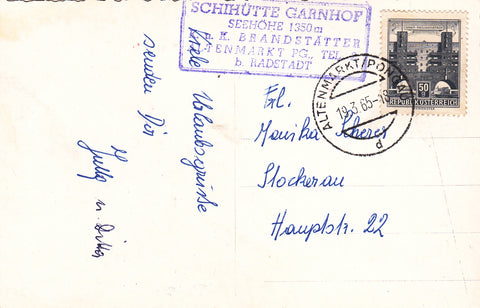 SCHIHÜTTE GARNHOF
SEEHÖHE 1350 m
K. BRANDSTÄTTER
ALTENMARKT PG., TEL.
b. RADSTADT
Viele Urlaubsgrüsse
senden Dir
u.
50
REPUBLIK ÖSTERREICH
ALTENMARKT/PONGAU
19.3.65-18
d
Frl.
Monika
Stockerau
Hauptstr. 22